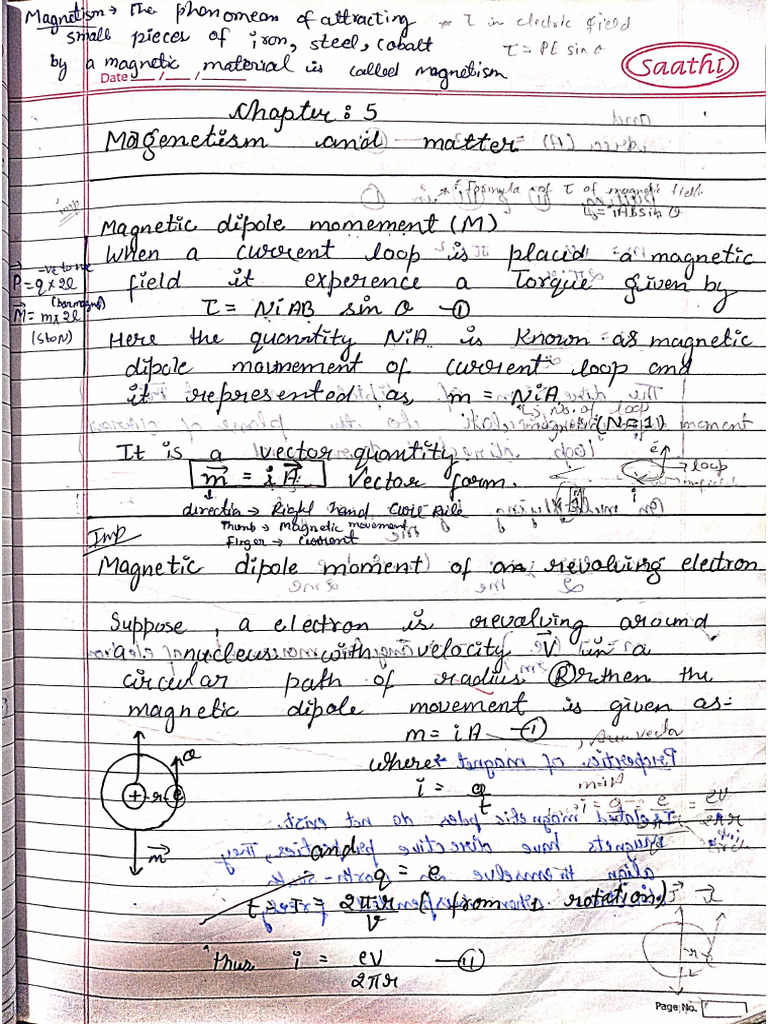 Magnetism → The phenomean of attracting
small pieces of iron, steel, cobalt
by a magnetic material is called magnetism
* τ in electric field
τ = PE sin θ
Saathi
Date __/__/__
Chapter: 5
Magenetism and matter
* Formula of τ of magnetic field
imp
= IAB sin θ
Magnetic dipole momement (M)
When a current loop is placid a magnetic
field it experence a Torque given by
-ve to +ve
P = q × 2l
(bar magnet)
M = m × 2l
(S to N)
τ = NiAB sin θ —①
Here the quantity NiA is known as magnetic
dipole movement of current loop and
it represented as, m = NiA
↳ no. of loop
(N=1)
It is a vector quantity
m = iA Vector form.
→ loop
i
direction → Right hand Curl Rule
Thumb → Magnetic movement
finger → Current
Imp
Magnetic dipole moment of an revolving electron
Suppose, a electron is revolving around
a nucleus with velocity V in a
circular path of radius R r then the
magnetic dipole movement is given as:-
m = iA —①
where
i = q/t
m = iA
+ r e
m
and
q = e
t = T = 2πr/v (from 1 rotation)
thus i = ev/2πr —⑪
Page No.